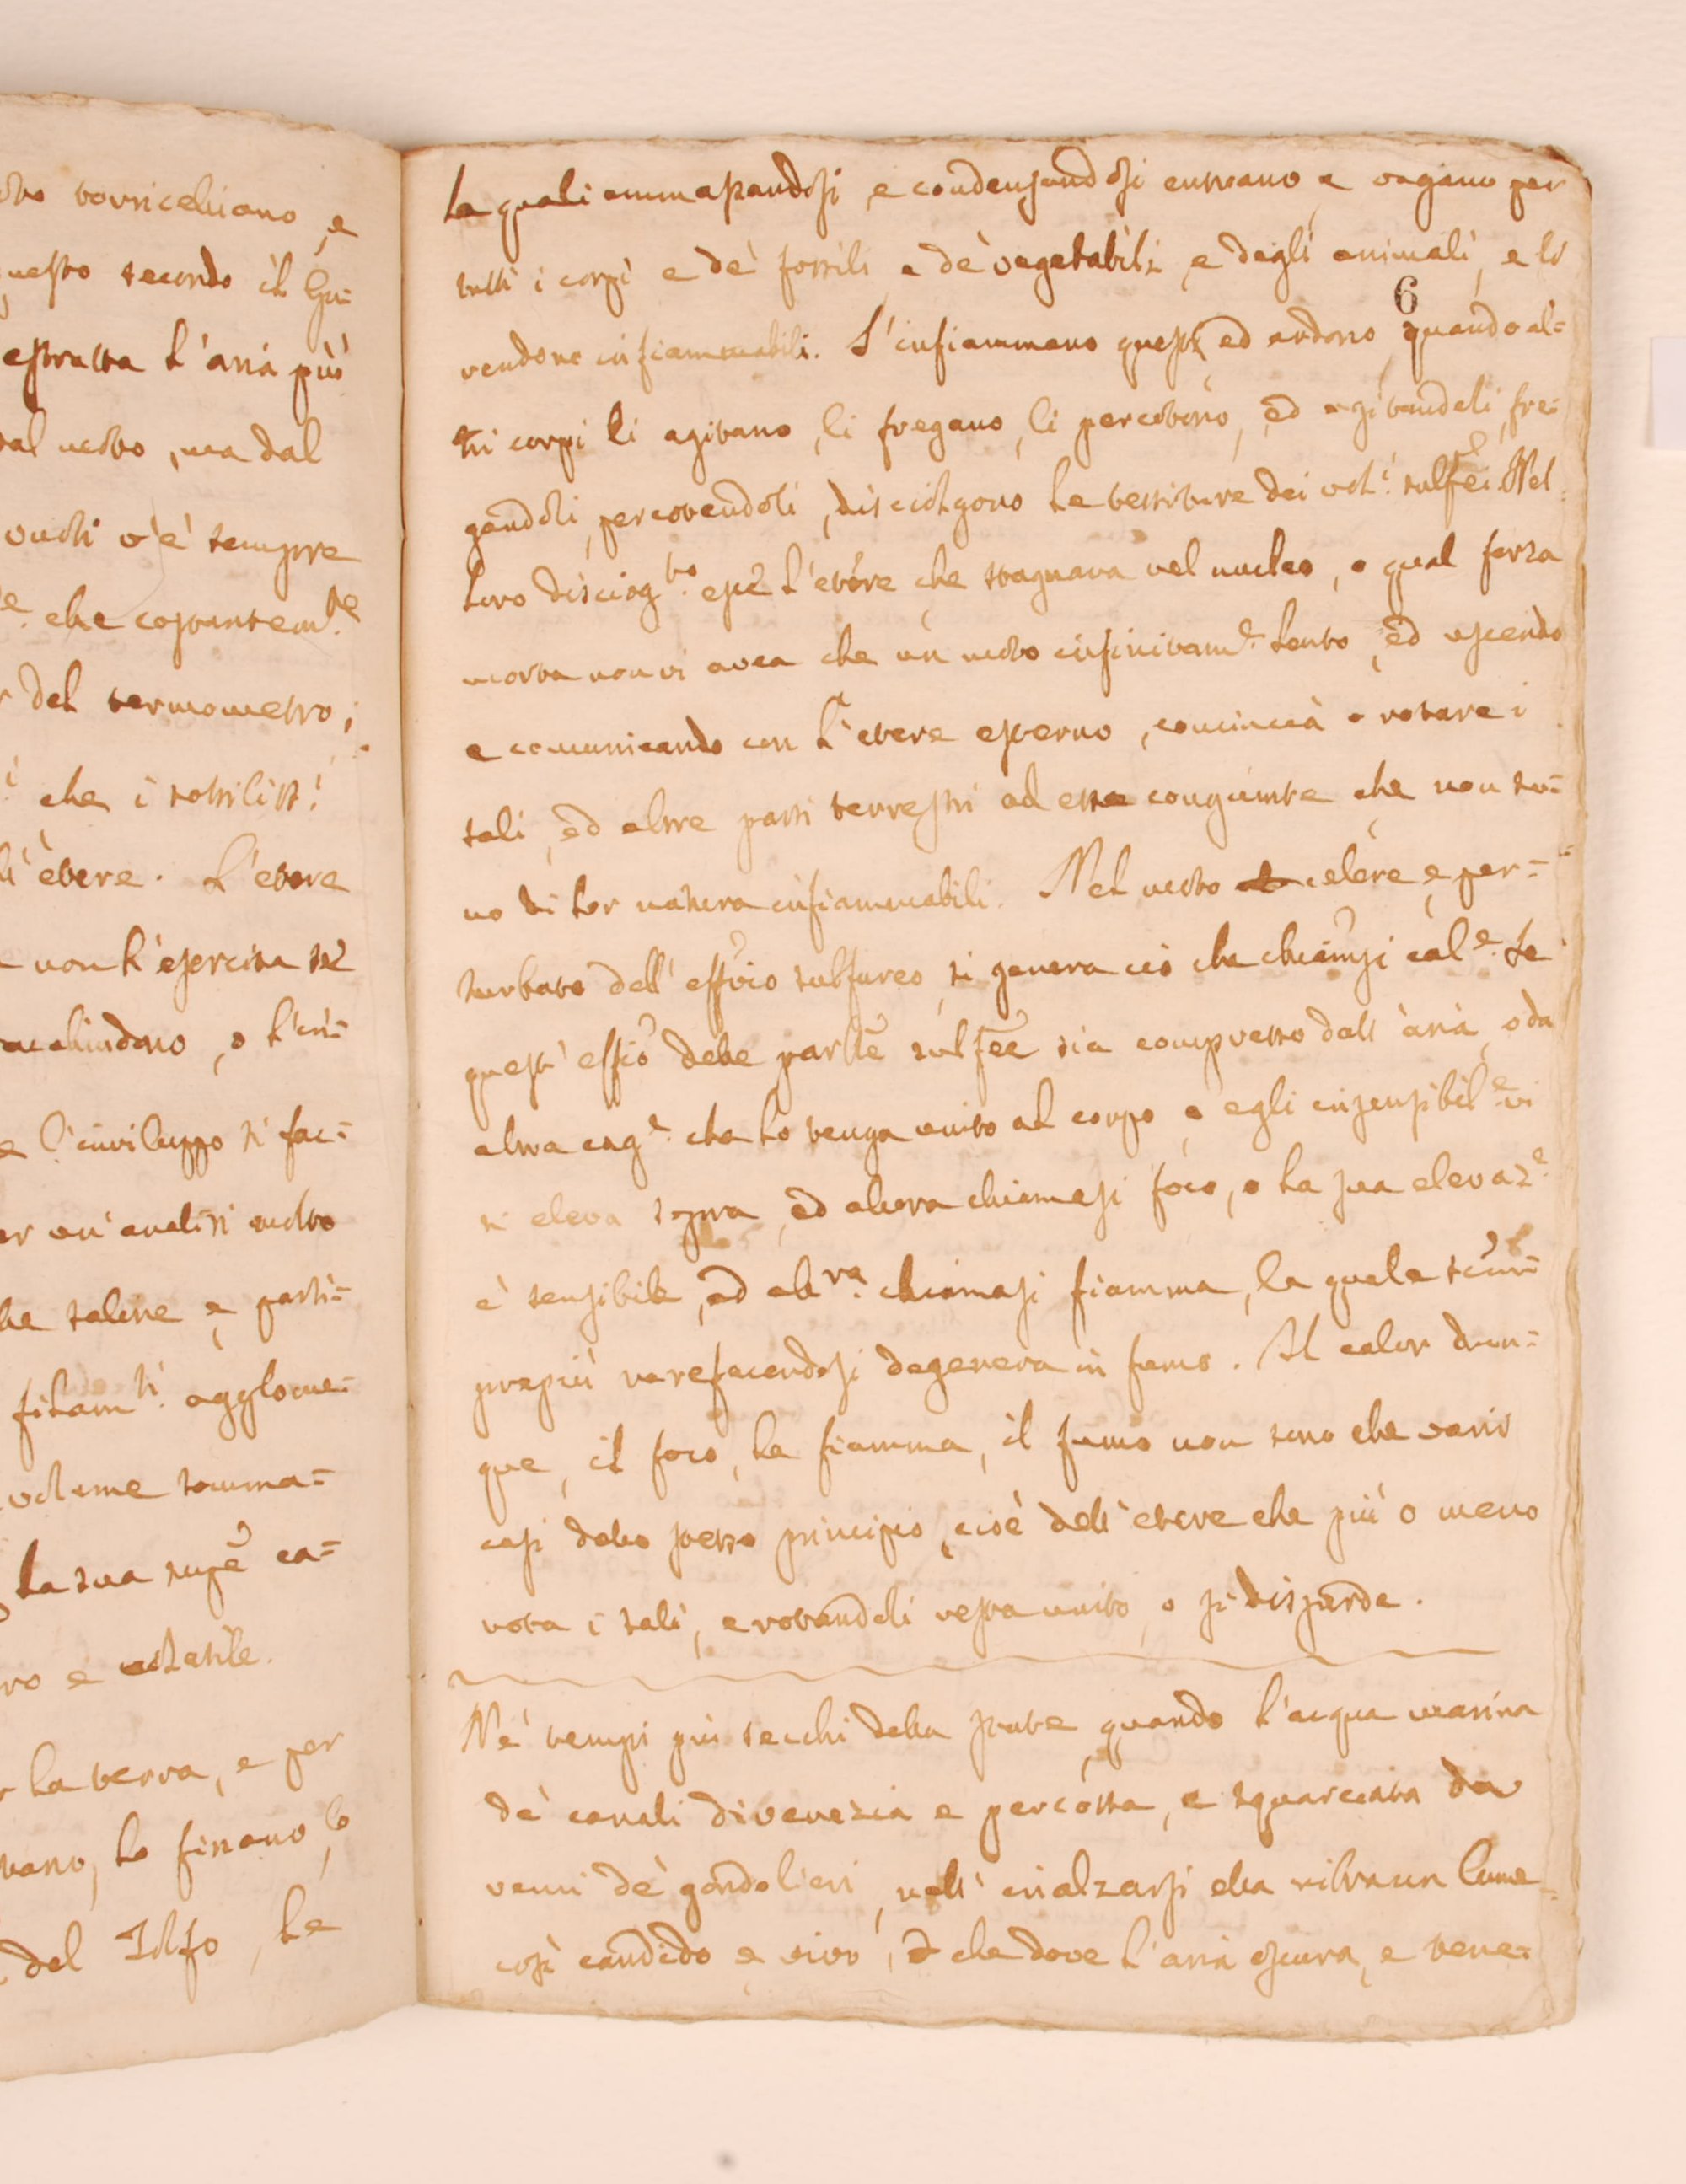 oto torricelliano, e
questo secondo il Gu=
estratta l'aria più
dal moto, ma dal
vuoti v'è sempre
che costantem.te
del termometro;
che i sottiliss.i
l'etere. L'etere
non l'esercita se
racchiudono, o l'in=
e l'inviluppo si fac=
er un'analisi molto
he saline e parti=
filam.ti agglome=
volume somma=
la sua supe ca=
ro e volatile.
la terra, e per
vano, lo fissano, lo
del Solfo, le
6
Le quali ammassandosi, e condensandosi entrano e vagano per
tutti i corpi e de' fossili e de' vegetabili, e degli animali, e li
rendono infiammabili. S'infiammano questi, ed ardono, quando al=
tri corpi li agitano, li fregano, li percotono, ed agitandoli, fre=
gandoli, percotendoli, disciolgono le testiture dei vol.i sulfei. Nel
loro disciog.to esce l'etere che stagnava nel nucleo, o qual forza
morta non vi avea che un moto infinitam.e lento, ed uscendo
e comunicando con l'etere esterno, comincia a rotare i
sali, ed altre parti terrestri ad esse congiunte che non so=
no di lor natura infiammabili. Nel moto celere e per=
turbato dell'effvio sulfureo si genera ciò che chiamsi cal.e Se
quest'effio dele partie sulfee sia compresso dall'aria, o da
altra cag.e che lo tenga unito al corpo, o egli insensibil.e vi
si eleva sopra, ed allora chiamasi foco, o la sua elevaz.e
è sensibile, ed all.ra chiamasi fiamma, la quale sem=
prepiù rarefacendosi degenera in fumo. Il calor dun=
que, il foco, la fiamma, il fumo non sono che varii
casi dello stesso principio, cioè dell'etere che più o meno
rota i sali, e rotandoli resta unito, o si disperde.
Ne' tempi più secchi della state, quando l'acqua marina
de' canali di venezia e percossa, e squarciata da
remi de' gondolieri, nell'inalzarsi ella vibra un lume
così candido e vivo, che dove l'aria oscura, e tene=